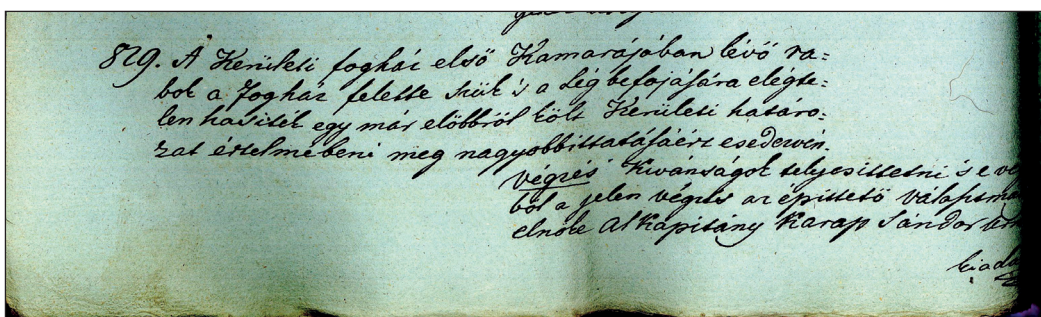 829. A Kerületi fogház első Kamarájában lévő ra:
bok a fogház felette szük 's a lég befojására elégte:
len hasiték egy már előbbről költ Kerületi határo:
zat értelmébeni meg nagyobbittatásáért esedezvén.
Végzés Kivánságok telyesittetni 's e vé
ből a jelen végzés az épittető választma
elnöke Al Kapitány Karap Sándor
kiad